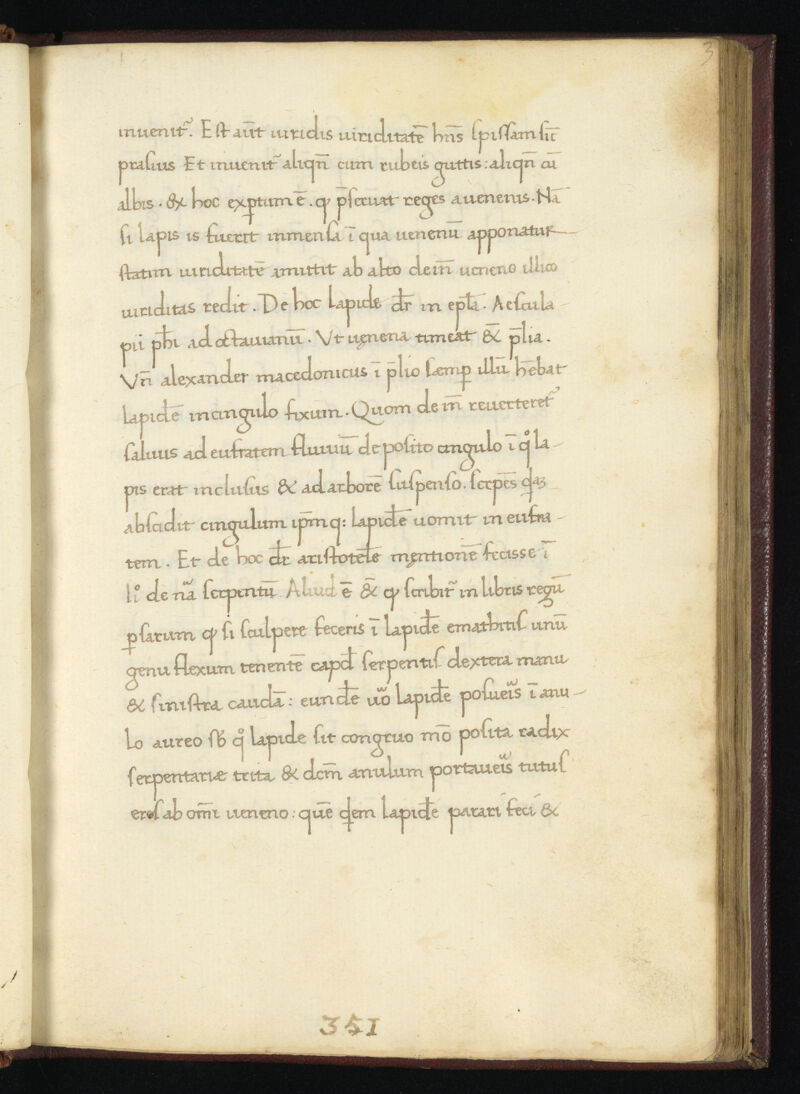 3
inuenit᷑. Est aūt uiridis uiriditatē hn̄s spissam sic̄
prasius Et inuenit᷑ aliqn̄ cum rubeis guttis: aliqn̄ cū
albis. & hoc exꝑtum ē. ꝙ p̄seruat reges a uenenis. Nā
si lapis is fuerit in mensa ī qua uenenū apponatur
statim uiriditatē amittit ab alto dein̄ ueneno illico
uiriditas redit. De hoc lapide dr̄ in epl̄a. Aescula
pii ph̄i ad octauianū. Vt uenena timeat & p̄lia.
Vn̄ alexander macedonicus ī p̄lio semꝑ illū hēbat
lapidē in cingulo fixum. Quom dein̄ reuerteret᷑
saluus ad eufratem fluuiū deposito cingulo ī qͦ la
pis erat inclusus & ad arborē suspenso. serpēs
abscidit cingulum ipm̄q: lapidē uomit in eufra
tem. Et de hoc dr̄ aristotelē mentionē fecisse ī
liͦ de nā serpentū. Aliud ē & ꝙ scribit᷑ in libris regū
ꝑsarum ꝙ si sculpere feceris ī lapidē emathitis unū
genu flexum tenentē capđ serpentis dextera manu
& sinistra caudā: eundē uͦo lapidē posueis ī anu
lo aureo sb̄ qͦ lapide sit congruo mō posita radix
serpentariae trita & dcm̄ anulum portaueis tutus
eris ab om̄i ueneno: quē qdem lapidē parari feci &
351